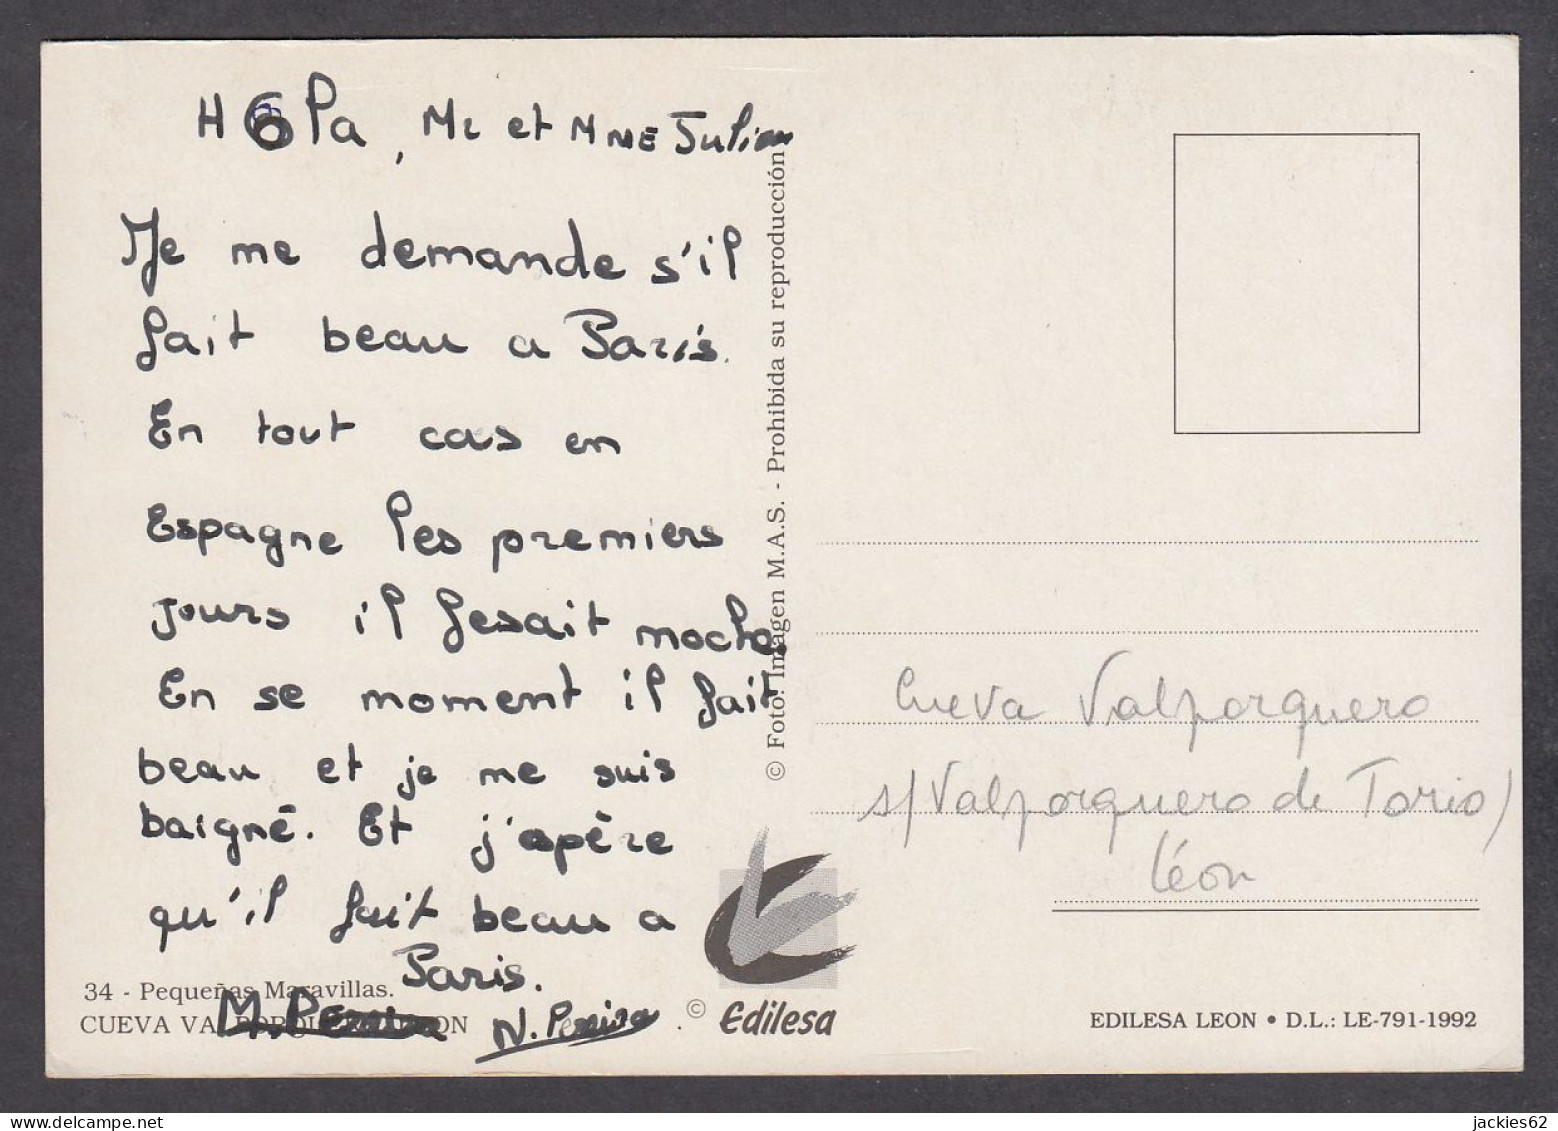 Hola, Mr et Mme Julien
Je me demande s'il
fait beau a Paris.
En tout cas en
Espagne les premiers
jours il fesait moche
En se moment il fait
beau et je me suis
baigné. Et j'espère
qu'il fait beau a
Paris.
M. Pereira N. Pereira
34 - Pequeñas Maravillas.
CUEVA VALPORQUERO LEON
© Foto: Imagen M.A.S. - Prohibida su reproducción
© Edilesa
Cueva Valporquero
s/Valporquero de Torio/
Léon
EDILESA LEON • D.L.: LE-791-1992
jackies62